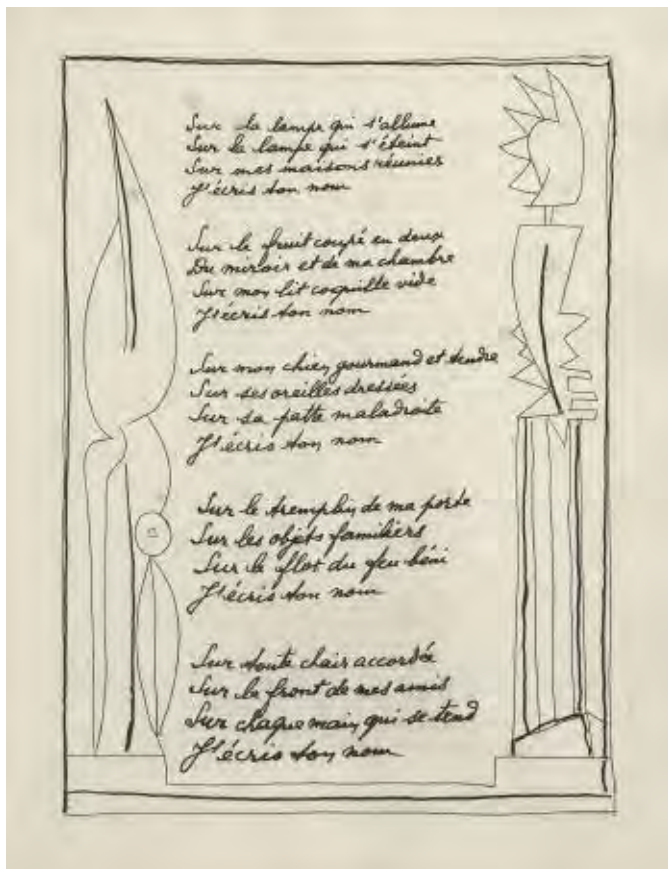 Sur la lampe qui s'allume
Sur la lampe qui s'éteint
Sur mes maisons réunies
J'écris ton nom
Sur le fruit coupé en deux
Du miroir et de ma chambre
Sur mon lit coquille vide
J'écris ton nom
Sur mon chien gourmand et tendre
Sur ses oreilles dressées
Sur sa patte maladroite
J'écris ton nom
Sur le tremplin de ma porte
Sur les objets familiers
Sur le flot du feu béni
J'écris ton nom
Sur toute chair accordée
Sur le front de mes amis
Sur chaque main qui se tend
J'écris ton nom